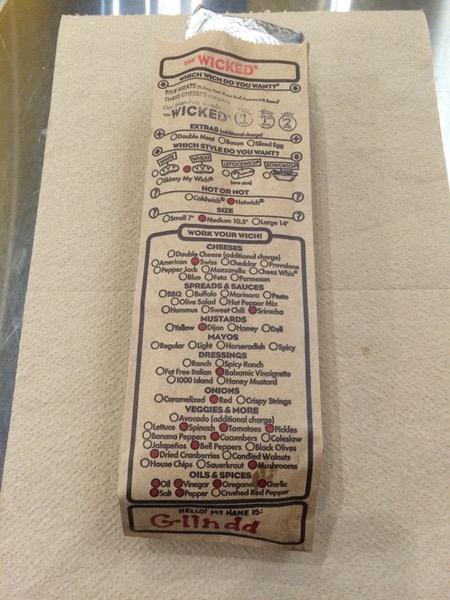 THE WICKED®
WHICH WICH DO YOU WANT?®
FIVE MEATS
THREE CHEESES
THE WICKED®
EXTRAS (additional charge)
Double Meat Bacon Sliced Egg
WHICH STYLE DO YOU WANT?
WHITE WHEAT LETTUCEWICH® BOWLWICH®
Skinny My Wich® (one size)
HOT OR NOT
Coldwich® Hotwich®
SIZE
Small 7" Medium 10.5" Large 14"
WORK YOUR WICH!
CHEESES
Double Cheese (additional charge)
American Swiss Cheddar Provolone
Pepper Jack Mozzarella Cheez Whiz®
Blue Feta Parmesan
SPREADS & SAUCES
BBQ Buffalo Marinara Pesto
Olive Salad Hot Pepper Mix
Hummus Sweet Chili Sriracha
MUSTARDS
Yellow Dijon Honey Deli
MAYOS
Regular Light Horseradish Spicy
DRESSINGS
Ranch Spicy Ranch
Fat Free Italian Balsamic Vinaigrette
1000 Island Honey Mustard
ONIONS
Caramelized Red Crispy Strings
VEGGIES & MORE
Avocado (additional charge)
Lettuce Spinach Tomatoes Pickles
Banana Peppers Cucumbers Coleslaw
Jalapeños Bell Peppers Black Olives
Dried Cranberries Candied Walnuts
House Chips Sauerkraut Mushrooms
OILS & SPICES
Oil Vinegar Oregano Garlic
Salt Pepper Crushed Red Pepper
HELLO! MY NAME IS:
Glinda